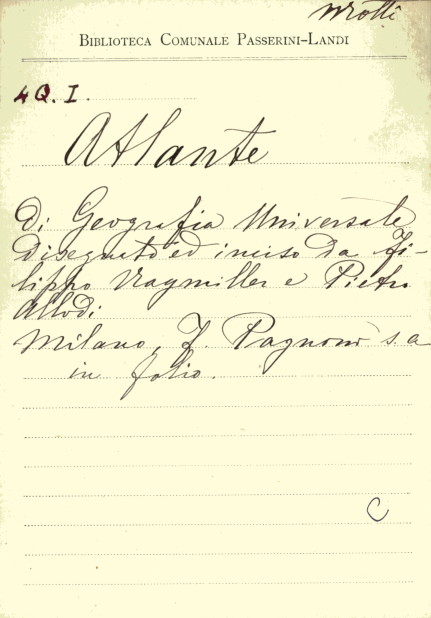 BIBLIOTECA COMUNALE PASSERINI-LANDI
4Q. I.
Atlante
Di Geografia Universale
disegnato ed inciso da Fi-
lippo Naymiller e Pietro
Allodi
Milano, F. Pagnoni s. a
in folio.
C